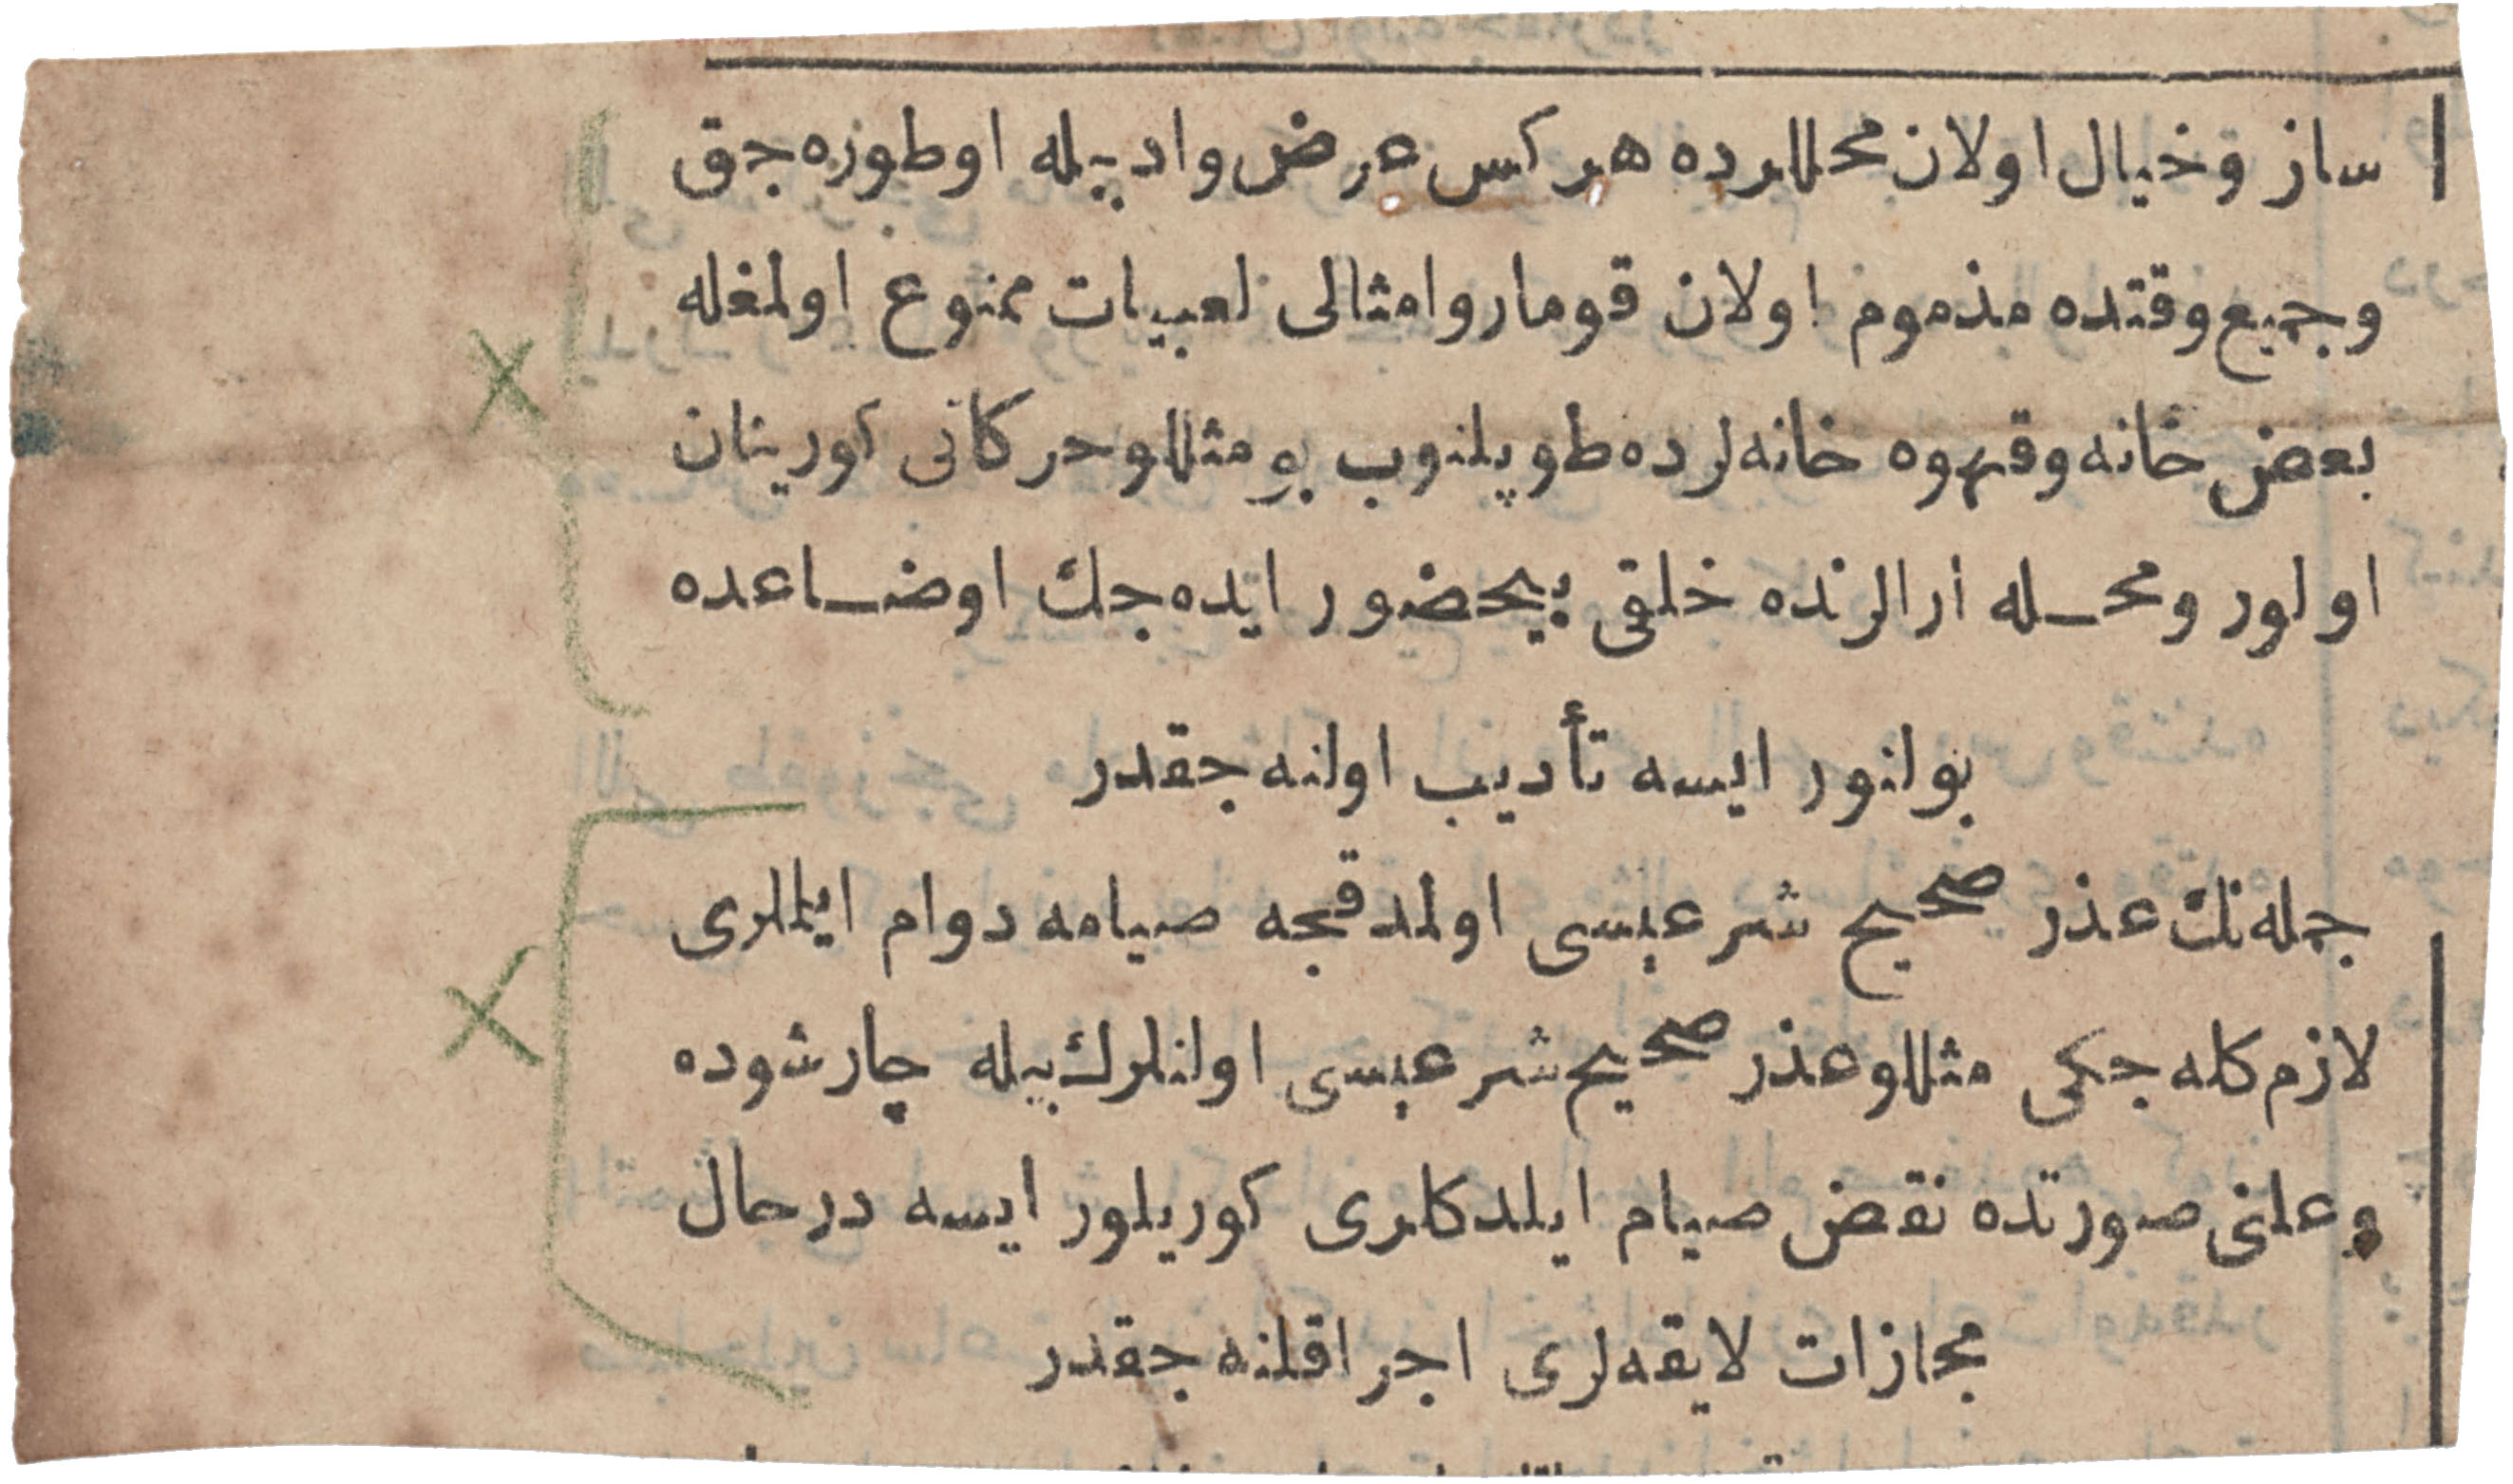 ساز وخيال اولان محللرده هركس عرض وادبيله اوطوره جق
وجميع وقتده مذموم اولان قومار وامثالى لعبيات ممنوع اولمغله
بعض خانه وقهوه خانه لرده طوپلنوب بو مثللو حركاتى كورينان
اولور ومحـله ارالرنده خلقى بيحضور ايده جك اوضـاعده
بولنور ايسه تأديب اولنه جقدر
جمله نك عذر صحيح شرعيسى اولمدقجه صيامه دوام ايتملرى
لازم كله جكى مثللو عذر صحيح شرعيسى اولنلرك بيله چارشوده
وعلنى صورتده نقض صيام ايلدكلرى كوريلور ايسه درحال
مجازات لايقه لرى اجرا قلنه جقدر